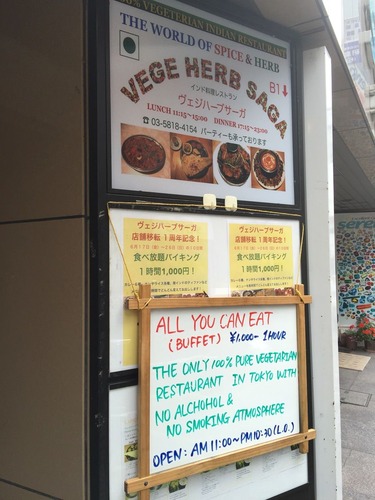 100% VEGETERIAN INDIAN RESTAURANT
THE WORLD OF SPICE & HERB
VEGE HERB SAGA
B1↓
インド料理レストラン
ヴェジハーブサーガ
LUNCH 11:15~15:00 DINNER 17:15~23:00
☎ 03-5818-4154 パーティーも承っております
ヴェジハーブサーガ
店舗移転 1周年記念!
食べ放題バイキング
1時間1,000円!
ヴェジハーブサーガ
店舗移転 1周年記念!
食べ放題バイキング
1時間1,000円!
ALL YOU CAN EAT
(BUFFET) ¥1,000- 1HOUR
THE ONLY 100% PURE VEGETARIAN
RESTAURANT IN TOKYO WITH
NO ALCHOHOL &
NO SMOKING ATMOSPHERE
OPEN: AM 11:00~PM 10:30 (L.O.)